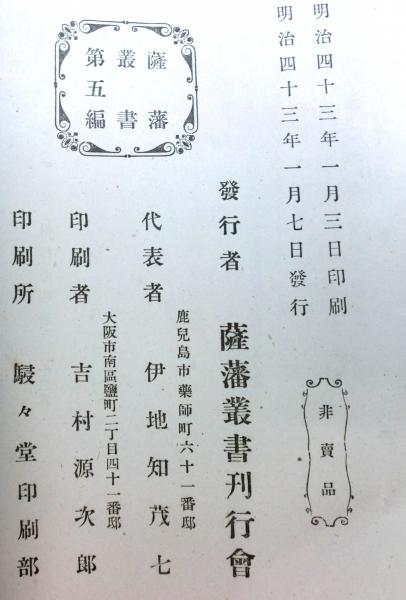 明治四十三年一月三日印刷
明治四十三年一月七日發行
非賣品
薩藩
叢書
第五編
發行者 薩藩叢書刊行會
鹿兒島市藥師町六十一番邸
代表者 伊地知茂七
大阪市南區鹽町二丁目四十一番邸
印刷者 吉村源次郎
印刷所 駸々堂印刷部